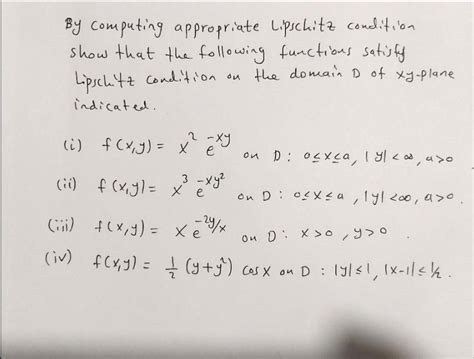 By computing appropriate Lipschitz condition
show that the following functions satisfy
Lipschitz condition on the domain D of xy-plane
indicated.
(i) f(x,y) = x² e^{-xy} on D : 0≤x≤a, |y|<∞, a>0
(ii) f(x,y) = x³ e^{-xy²} on D : 0≤x≤a, |y|<∞, a>0.
(iii) f(x,y) = x e^{-2y/x} on D : x>0, y>0.
(iv) f(x,y) = ½ (y+y²) cosx on D : |y|≤1, |x-1|≤½.